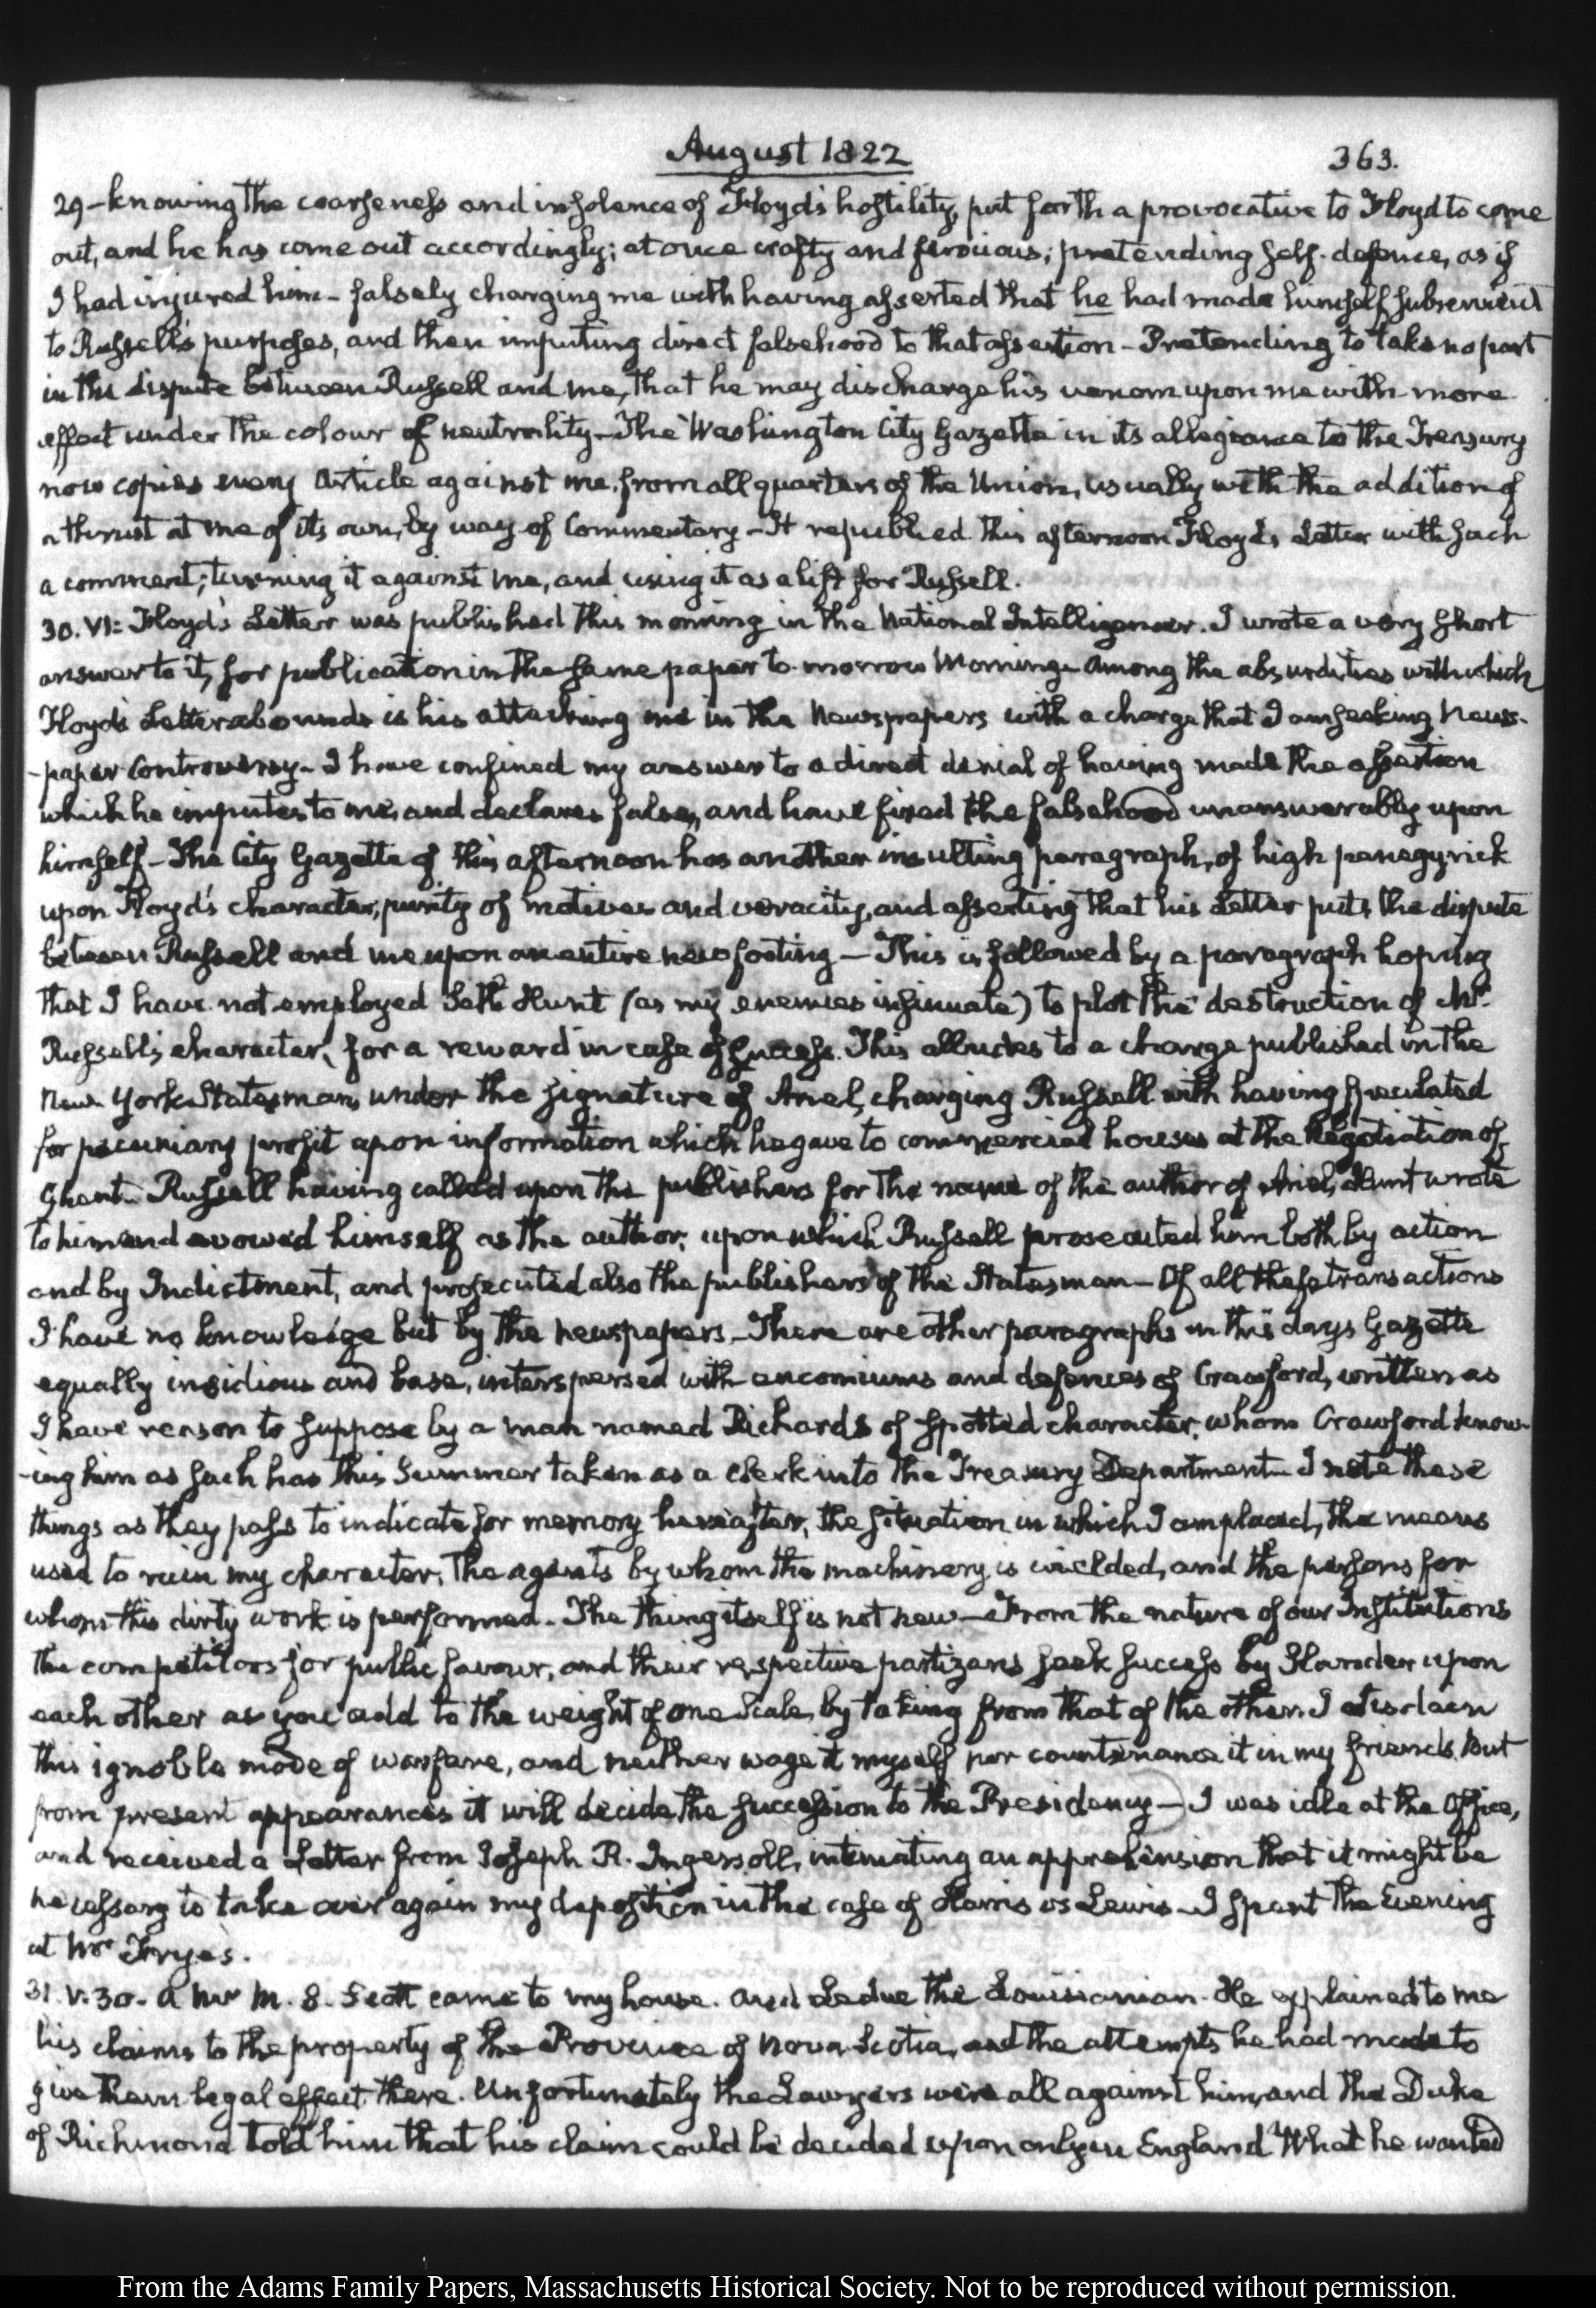 August 1822
363.
29 - knowing the coarseness and insolence of Floyd's hostility, put forth a provocative to Floyd to come
out, and he has come out accordingly; at once crafty and ferocious; pretending self-defence, as if
I had injured him - falsely charging me with having asserted that he had made himself subservient
to Russell's purposes, and then imputing direct falsehood to that assertion - Pretending to take no part
in the dispute between Russell and me, that he may discharge his venom upon me with more
effect under the colour of neutrality - The Washington City Gazette in its allegiance to the Treasury
now copies every Article against me, from all quarters of the Union, usually with the addition of
a thrust at me of its own, by way of Commentary - It republished this afternoon Floyd's Letter with such
a comment; turning it against me, and using it as a lift for Russell.
30. VI: Floyd's Letter was published this morning in the National Intelligencer. I wrote a very short
answer to it, for publication in the same paper to-morrow Morning - Among the absurdities with which
Floyd's Letter abounds is his attacking me in the Newspapers with a charge that I am seeking News-
-paper Controversy - I have confined my answer to a direct denial of having made the assertion
which he imputes to me, and declares false, and have fixed the falsehood unanswerably upon
himself - The City Gazette of this afternoon has another insulting paragraph, of high panegyrick
upon Floyd's character, purity of motives and veracity, and asserting that his Letter puts the dispute
between Russell and me upon an entire new footing - This is followed by a paragraph hoping
that I have not employed Seth Hunt (as my enemies insinuate) to plot the destruction of Mr.
Russell's character, for a reward in case of success. This alludes to a charge published in the
New York Statesman, under the signature of Ariel, charging Russell with having speculated
for pecuniary profit upon information which he gave to commercial houses at the Negotiation of
Ghent - Russell having called upon the publishers for the name of the author of Ariel, Hunt wrote
to him and avowed himself as the author; upon which Russell prosecuted him both by action
and by Indictment, and prosecuted also the publishers of the Statesman - Of all these transactions
I have no knowledge but by the newspapers - There are other paragraphs in this days Gazette
equally insidious and base, interspersed with encomiums and defences of Crawford, written as
I have reason to suppose by a man named Richards of spotted character, whom Crawford know-
-ing him as such has this Summer taken as a Clerk into the Treasury Department - I note these
things as they pass to indicate for memory hereafter, the situation in which I am placed, the means
used to ruin my character, the agents by whom the machinery is wielded, and the persons for
whom this dirty work is performed - The thing itself is not new - From the nature of our Institutions
the competitors for public favour, and their respective partizans seek success by slander upon
each other as you add to the weight of one Scale, by taking from that of the other. I disdain
this ignoble mode of warfare, and neither wage it myself nor countenance it in my friends. But
from present appearances it will decide the succession to the Presidency - I was idle at the Office,
and received a Letter from Joseph R. Ingersoll, intimating an apprehension that it might be
necessary to take over again my deposition in the case of Harris vs Lewis - I spent the Evening
at Mr Fryes.
31. V:30. A Mr M. S. Scott came to my house. And Ledue the Louisianian. He explained to me
his claims to the property of the Province of Nova-Scotia, and the attempts he had made to
give them legal effect there. Unfortunately the Lawyers were all against him, and the Duke
of Richmond told him that his claim could be decided upon only in England What he wanted
From the Adams Family Papers, Massachusetts Historical Society. Not to be reproduced without permission.